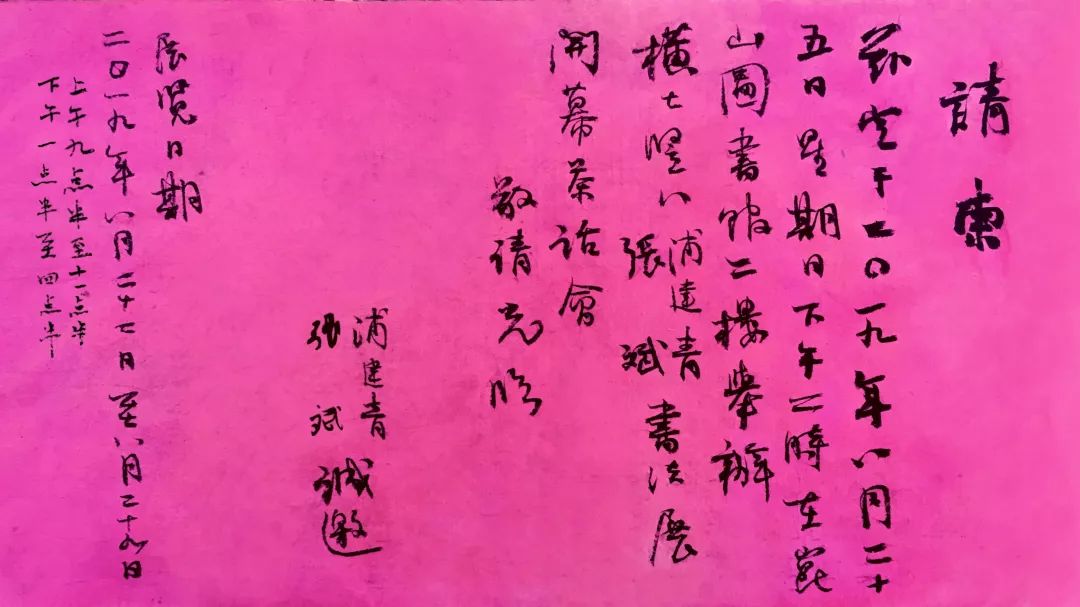 請柬
兹定于二〇一九年八月二十
五日星期日下午二時在崑
山圖書館二樓舉辦
橫七竖八浦建青張斌書法展
開幕茶话會
敬请光临
浦建青
張斌
誠邀
展览日期
二〇一九年八月二十七日至八月二十九日
上午九点半至十一点半
下午一点半至四点半